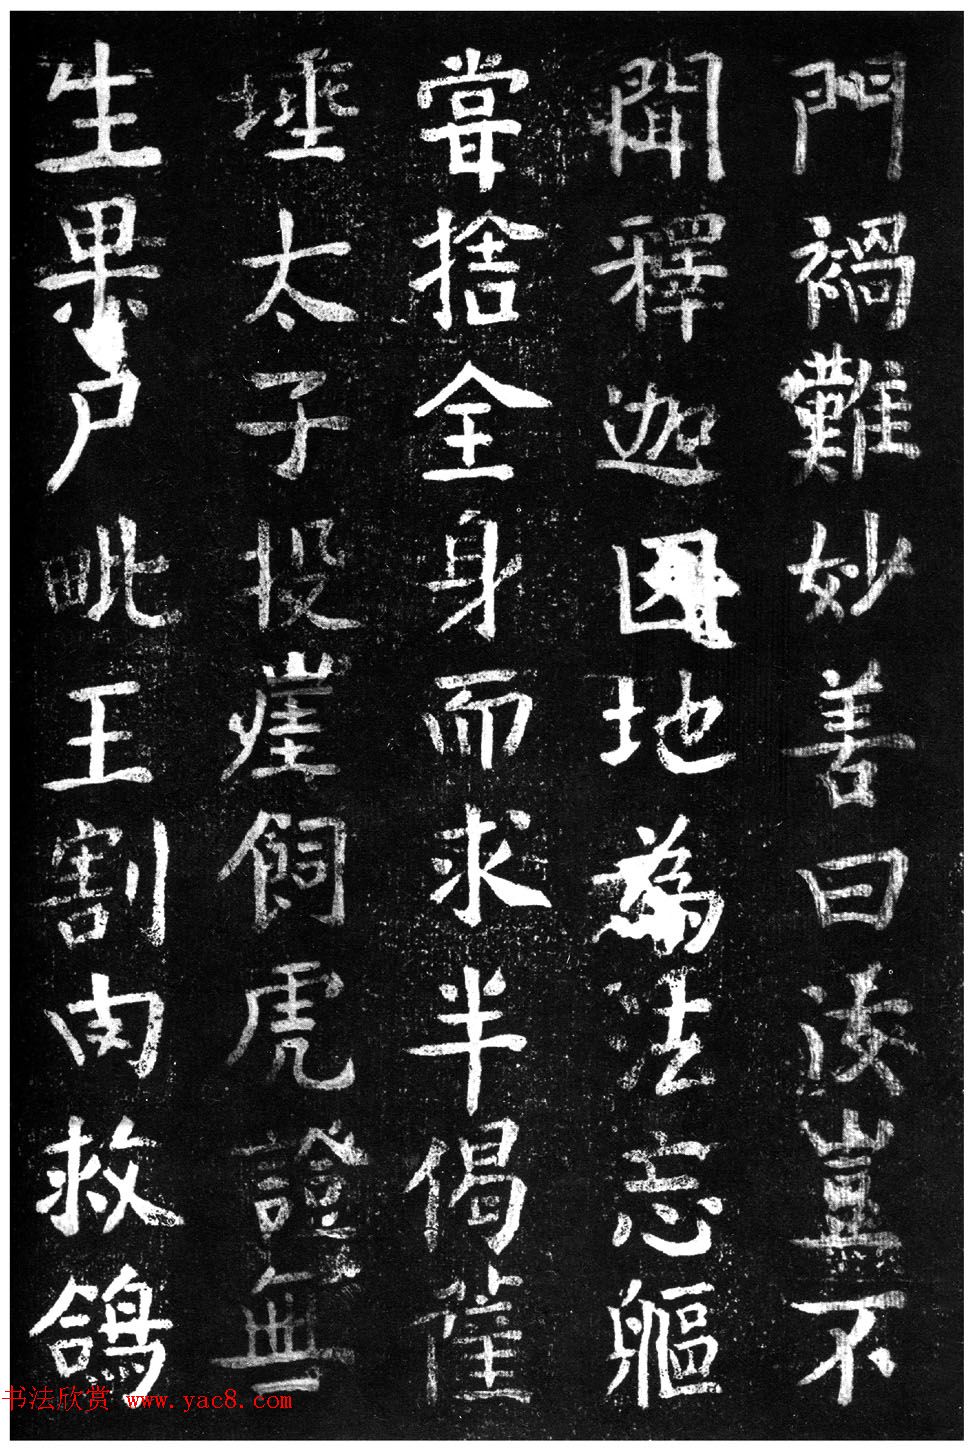 門禍難妙善曰汝豈不
聞釋迦因地為法忘軀
嘗捨全身而求半偈薩
埵太子投崖飼虎證無
生果尸毗王割肉救鴿
书法欣赏 www.yac8.com